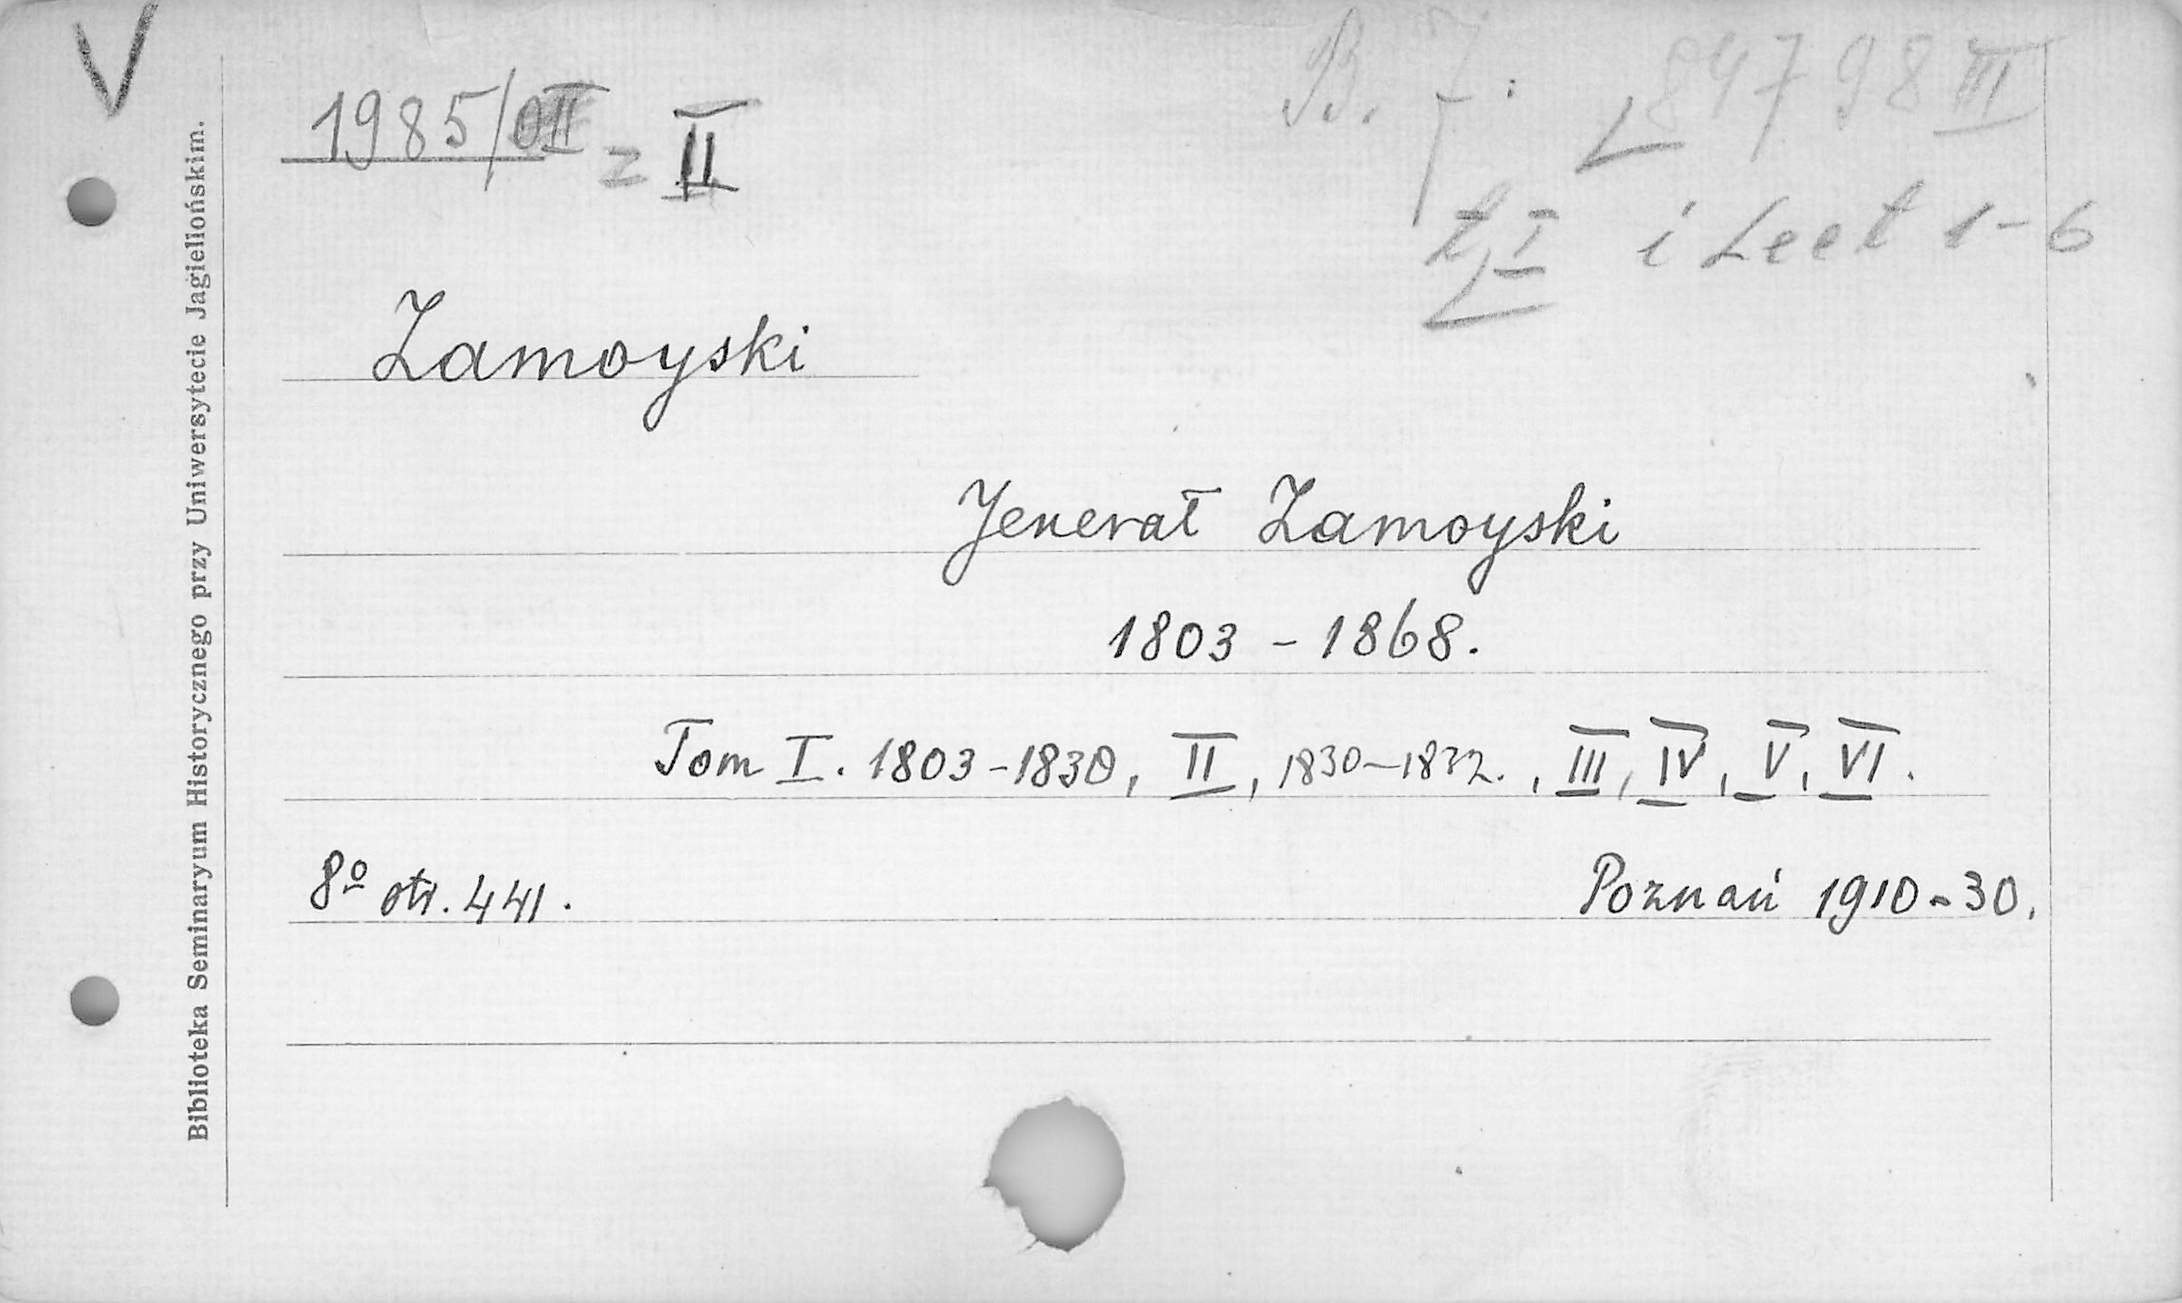 V
B. J. 84798 III
1985/ II
t, I i Lect 1-6
Zamoyski
Jenerał Zamoyski
1803 - 1868.
Tom I. 1803-1830, II, 1830-1832., III, IV, V, VI.
8º str. 441.
Poznań 1910-30.
Biblioteka Seminaryum Historycznego przy Uniwersytecie Jagiellońskim.